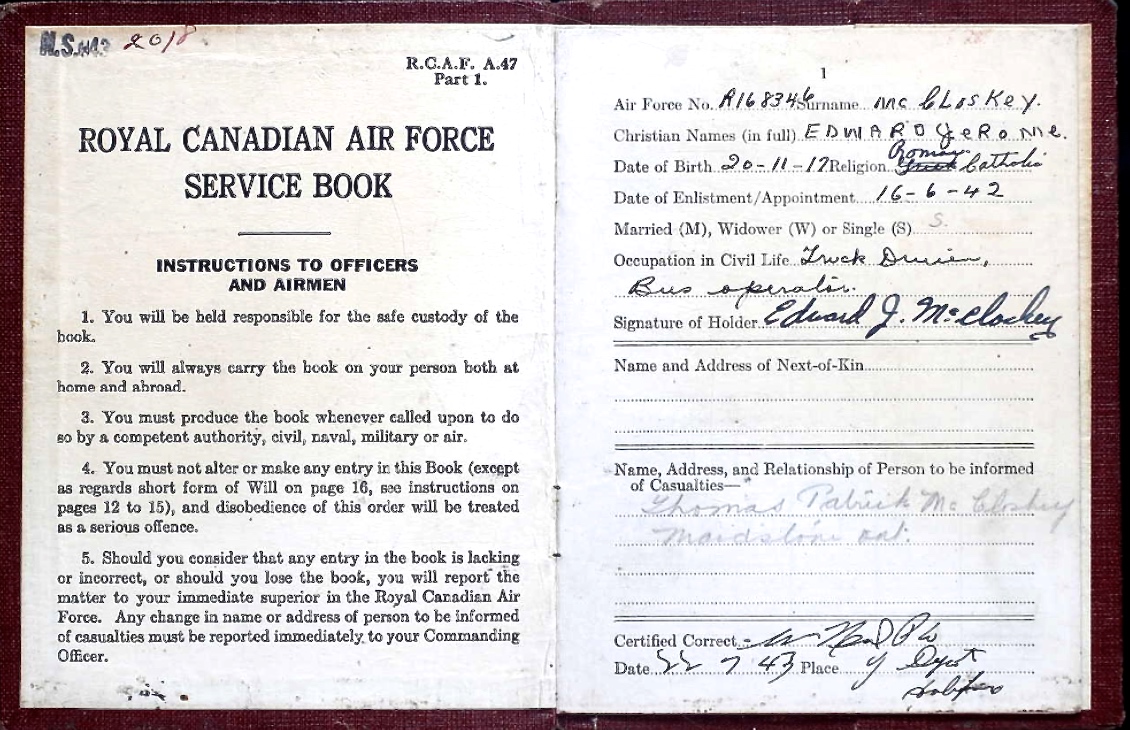 2018
R.C.A.F. A.47
Part 1.
ROYAL CANADIAN AIR FORCE
SERVICE BOOK
INSTRUCTIONS TO OFFICERS
AND AIRMEN
1. You will be held responsible for the safe custody of the
book.
2. You will always carry the book on your person both at
home and abroad.
3. You must produce the book whenever called upon to do
so by a competent authority, civil, naval, military or air.
4. You must not alter or make any entry in this Book (except
as regards short form of Will on page 16, see instructions on
pages 12 to 15), and disobedience of this order will be treated
as a serious offence.
5. Should you consider that any entry in the book is lacking
or incorrect, or should you lose the book, you will report the
matter to your immediate superior in the Royal Canadian Air
Force. Any change in name or address of person to be informed
of casualties must be reported immediately to your Commanding
Officer.
1
Air Force No. R168346 Surname Mc Closkey.
Christian Names (in full) EDWARD JeRoMe.
Date of Birth 20-11-17 Religion Roman Catholic
Date of Enlistment/Appointment 16-6-42
Married (M), Widower (W) or Single (S) S.
Occupation in Civil Life Truck Driver,
Bus operator.
Signature of Holder Edward J. McCloskey
Name and Address of Next-of-Kin
Name, Address, and Relationship of Person to be informed
of Casualties—
Thomas Patrick McCloskey
Maidstone Ont.
Certified Correct
Date 22 7 43 Place Y Depot
Halifax